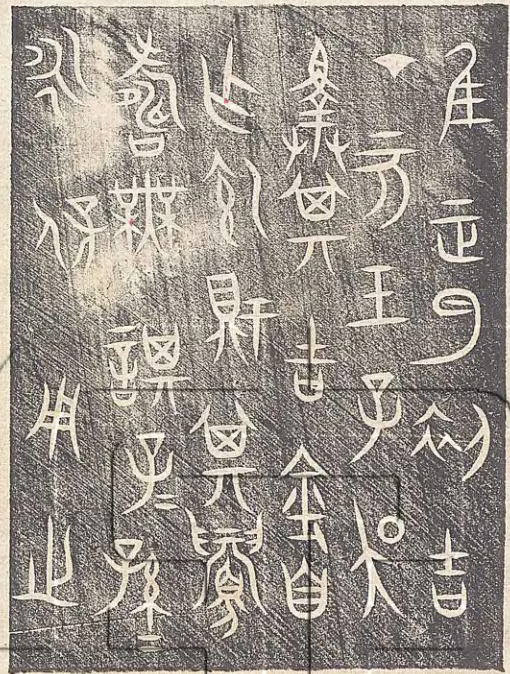 隹正月初吉
丁亥王子吳
擇其吉金自
乍飤其眉
壽無諆子=孫=
永保用之